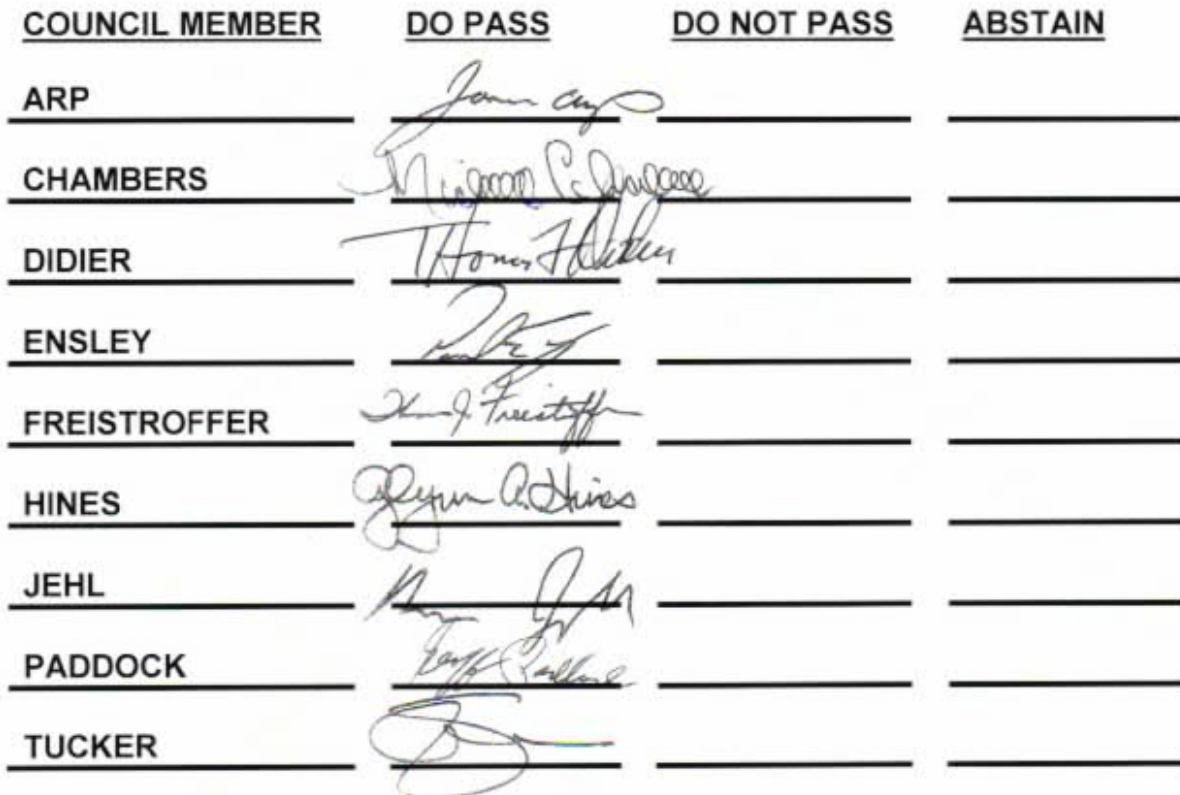 COUNCIL MEMBER DO PASS DO NOT PASS ABSTAIN
ARP
CHAMBERS
DIDIER Thomas F Didier
ENSLEY
FREISTROFFER J. Freistroffer
HINES Glynn A. Hines
JEHL
PADDOCK Geoff Paddock
TUCKER